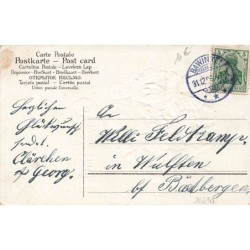 Carte Postale
Postkarte — Post card
Cartolina Postale – Levelezo Lap
Dopisnice – Brefkort – Briefkaart – Brevkort
ОТКРЫТОЕ ПИСЬМО
Tarjeta postal – Cartão postal
Union postale Universelle
31.12.
Herzlichen
Glückwunsch
sendet
Clärchen
u. Georg.
Willi Feldkamp
in Wulften
bei Badbergen